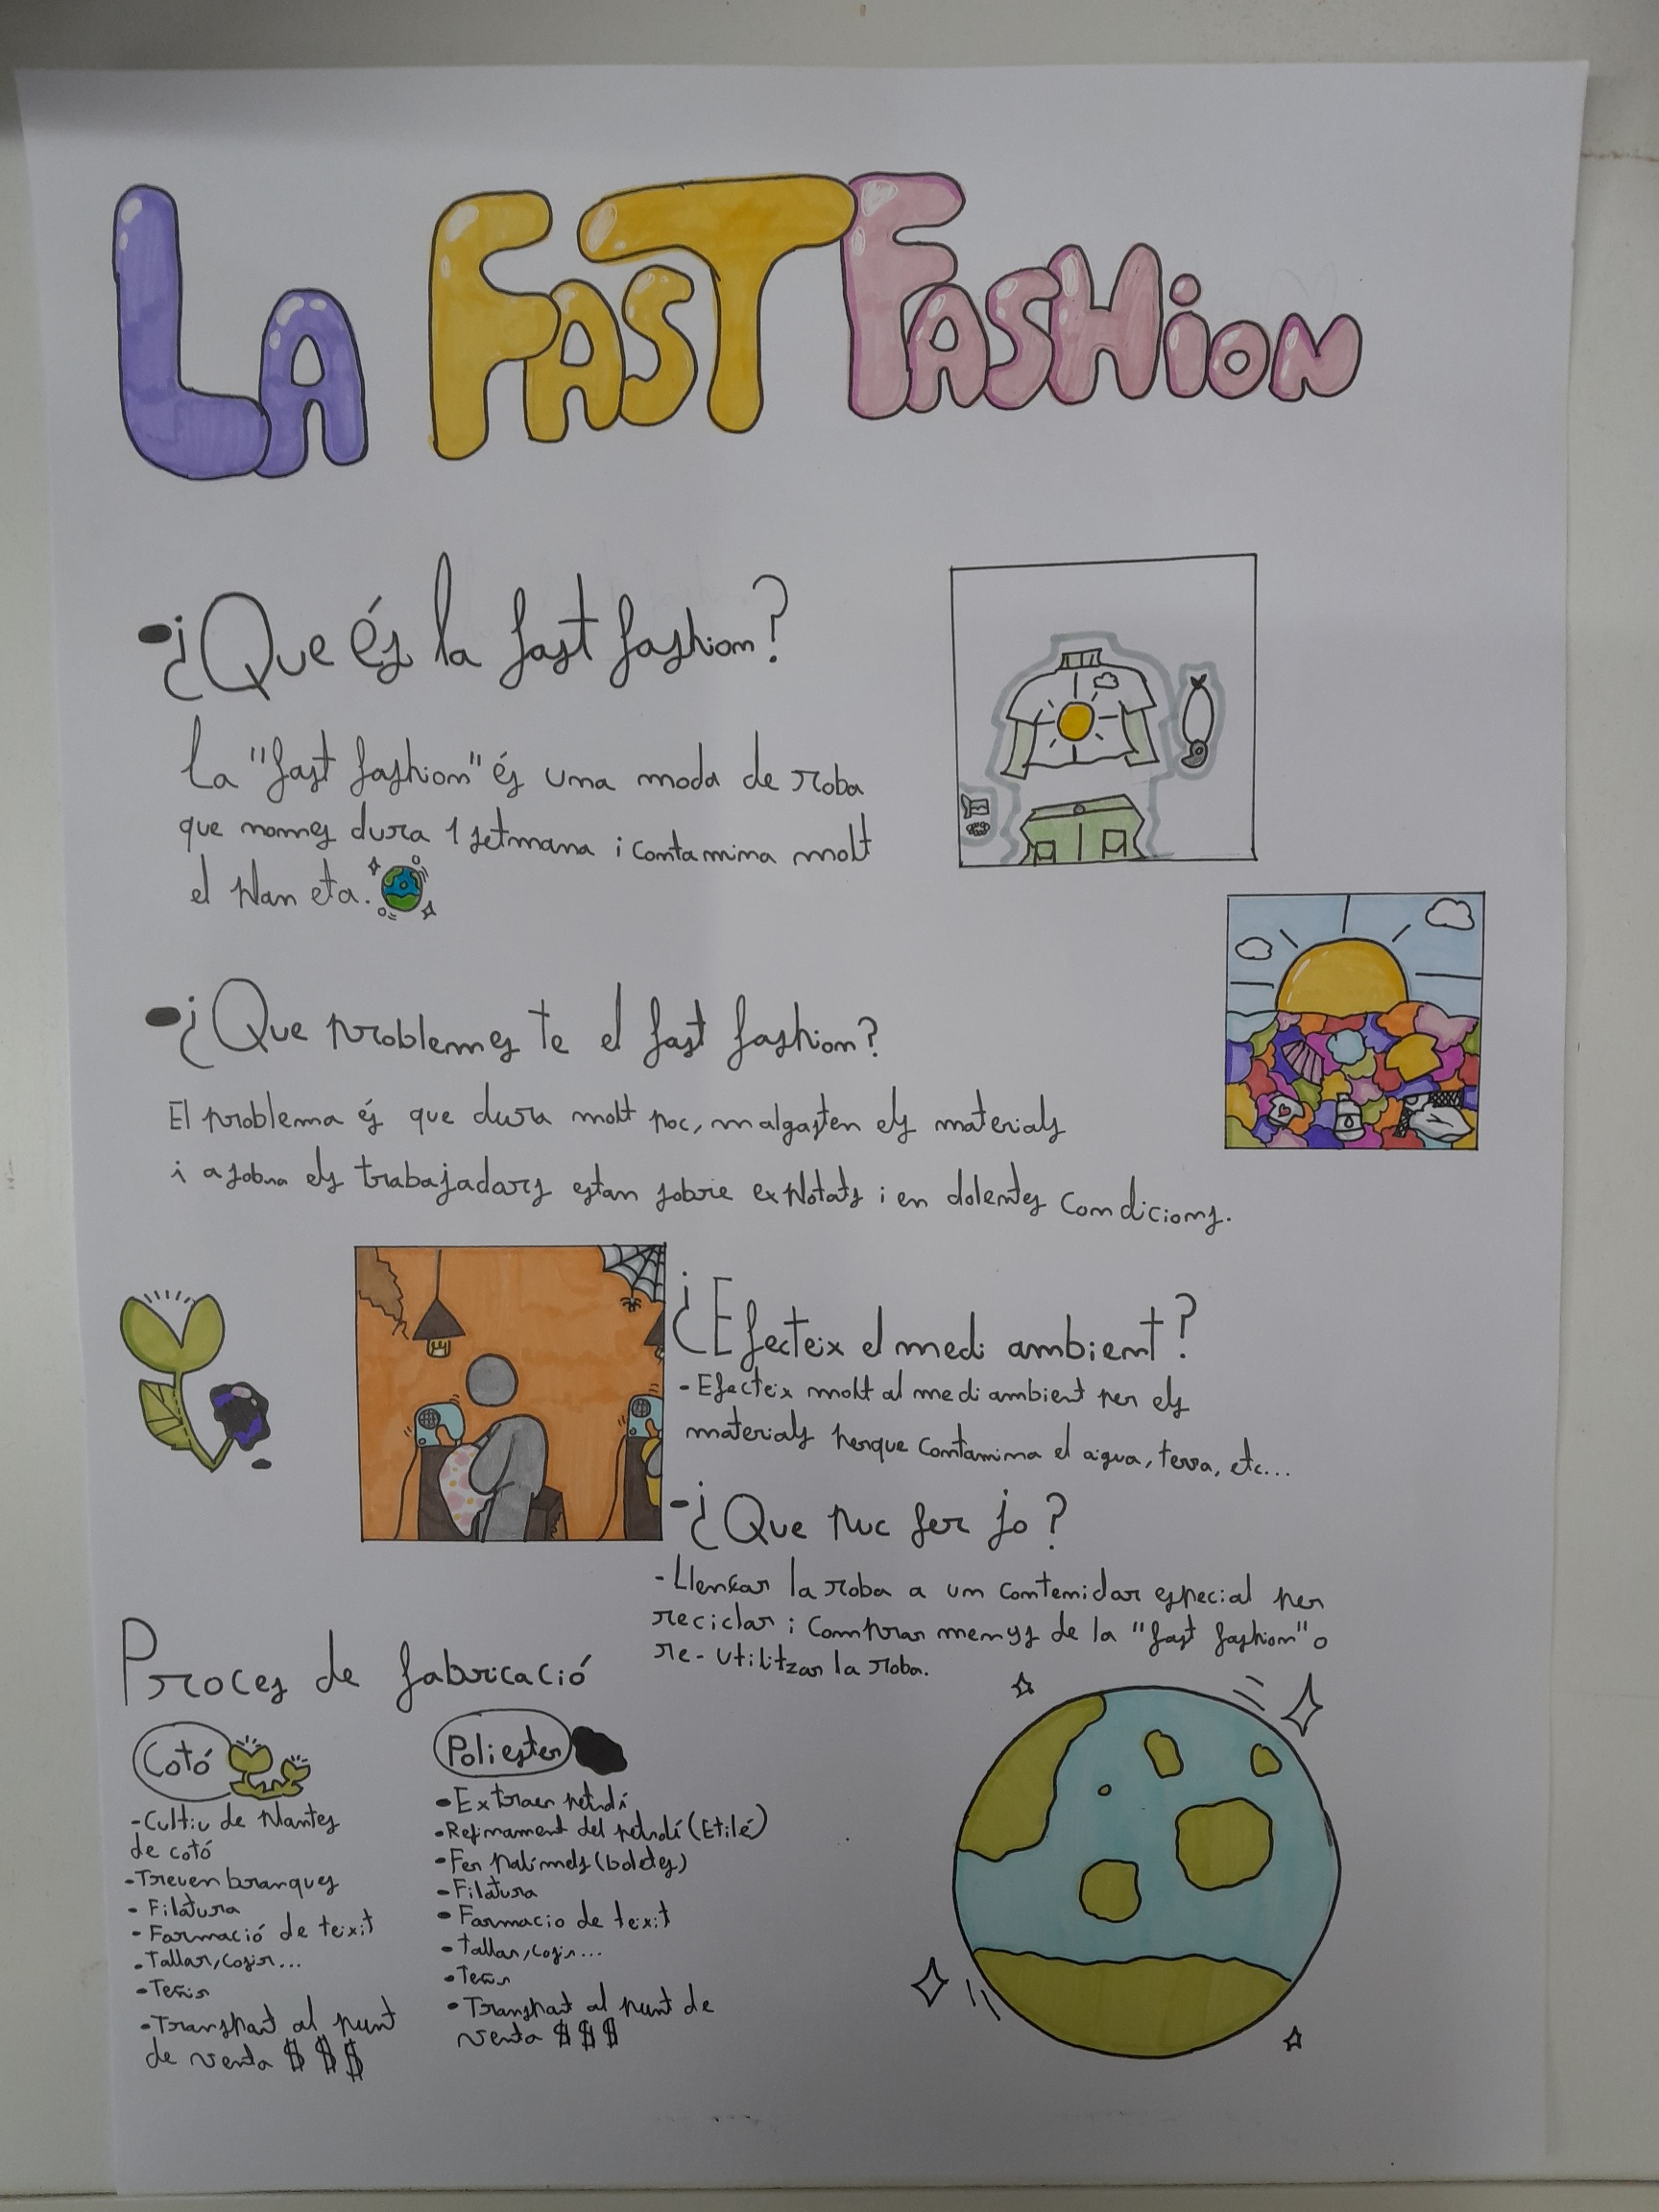 LA FAST FASHION
¿Que és la fast fashion?
La "fast fashion" és una moda de roba
que nomes dura 1 setmana i contamina molt
el planeta.
¿Que problemes te el fast fashion?
El problema és que dura molt poc, malgasten els materials
i a sobra els trabajadors estan sobre explotats i en dolentes condicions.
¿Efecteix el medi ambient?
- Efecteix molt al medi ambient per els
materials perque contamina el aigua, terra, etc...
-¿Que puc fer jo?
- Llençar la roba a un contenidor especial per
reciclar i comprar menys de la "fast fashion" o
re-utilitzar la roba.
Proces de fabricació
Cotó
-Cultiu de plantes
de cotó
-Treuen branques
- Filatura
- Formació de teixit
- Tallar, cosir...
- Teñir
- Transport al punt
de venta $ $ $
Poliester
- Extraer petroli
- Refinament del petroli (Etilé)
- Fer polimels (boldes)
- Filatura
- Formacio de teixit
- Tallar, cosir...
- Teñir
- Transport al punt de
venta $ $ $